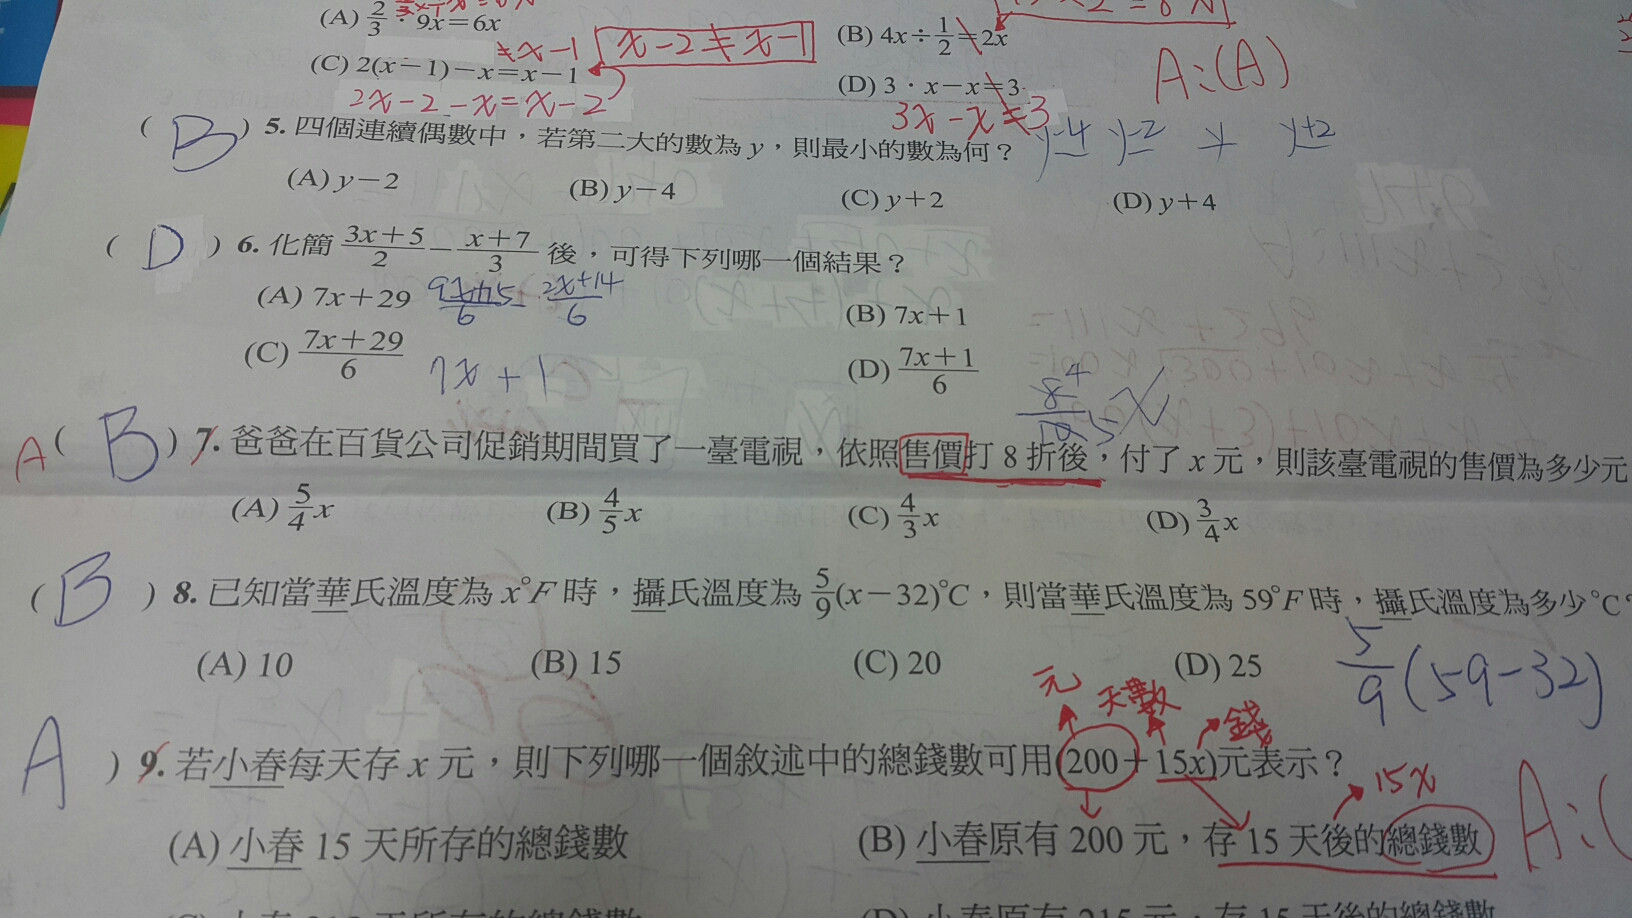 (A) 2/3 · 9x=6x
(B) 4x÷1/2=2x
≠x-1
x-2≠x-1
(C) 2(x-1)-x=x-1
(D) 3·x-x=3
A:(A)
2x-2-x=x-2
3x-x≠3
(B) 5. 四個連續偶數中，若第二大的數為y，則最小的數為何？
y-4 y-2 y y+2
(A) y-2 (B) y-4 (C) y+2 (D) y+4
(D) 6. 化簡 (3x+5)/2 - (x+7)/3 後，可得下列哪一個結果？
(A) 7x+29
(9x+15)/6 - (2x+14)/6
(B) 7x+1
(C) (7x+29)/6
7x+1
(D) (7x+1)/6
8/10 4 5 x
A (B) 7. 爸爸在百貨公司促銷期間買了一臺電視，依照售價打8折後，付了x元，則該臺電視的售價為多少元
(A) 5/4 x (B) 4/5 x (C) 4/3 x (D) 3/4 x
(B) 8. 已知當華氏溫度為x°F時，攝氏溫度為5/9(x-32)°C，則當華氏溫度為59°F時，攝氏溫度為多少°C
(A) 10 (B) 15 (C) 20 (D) 25
5/9(59-32)
元 天數 錢
A ) 9. 若小春每天存x元，則下列哪一個敘述中的總錢數可用(200+15x)元表示？
15x
(A) 小春15天所存的總錢數 (B) 小春原有200元，存15天後的總錢數
A:(
(D) 小春原有215元，存15天後的總錢數